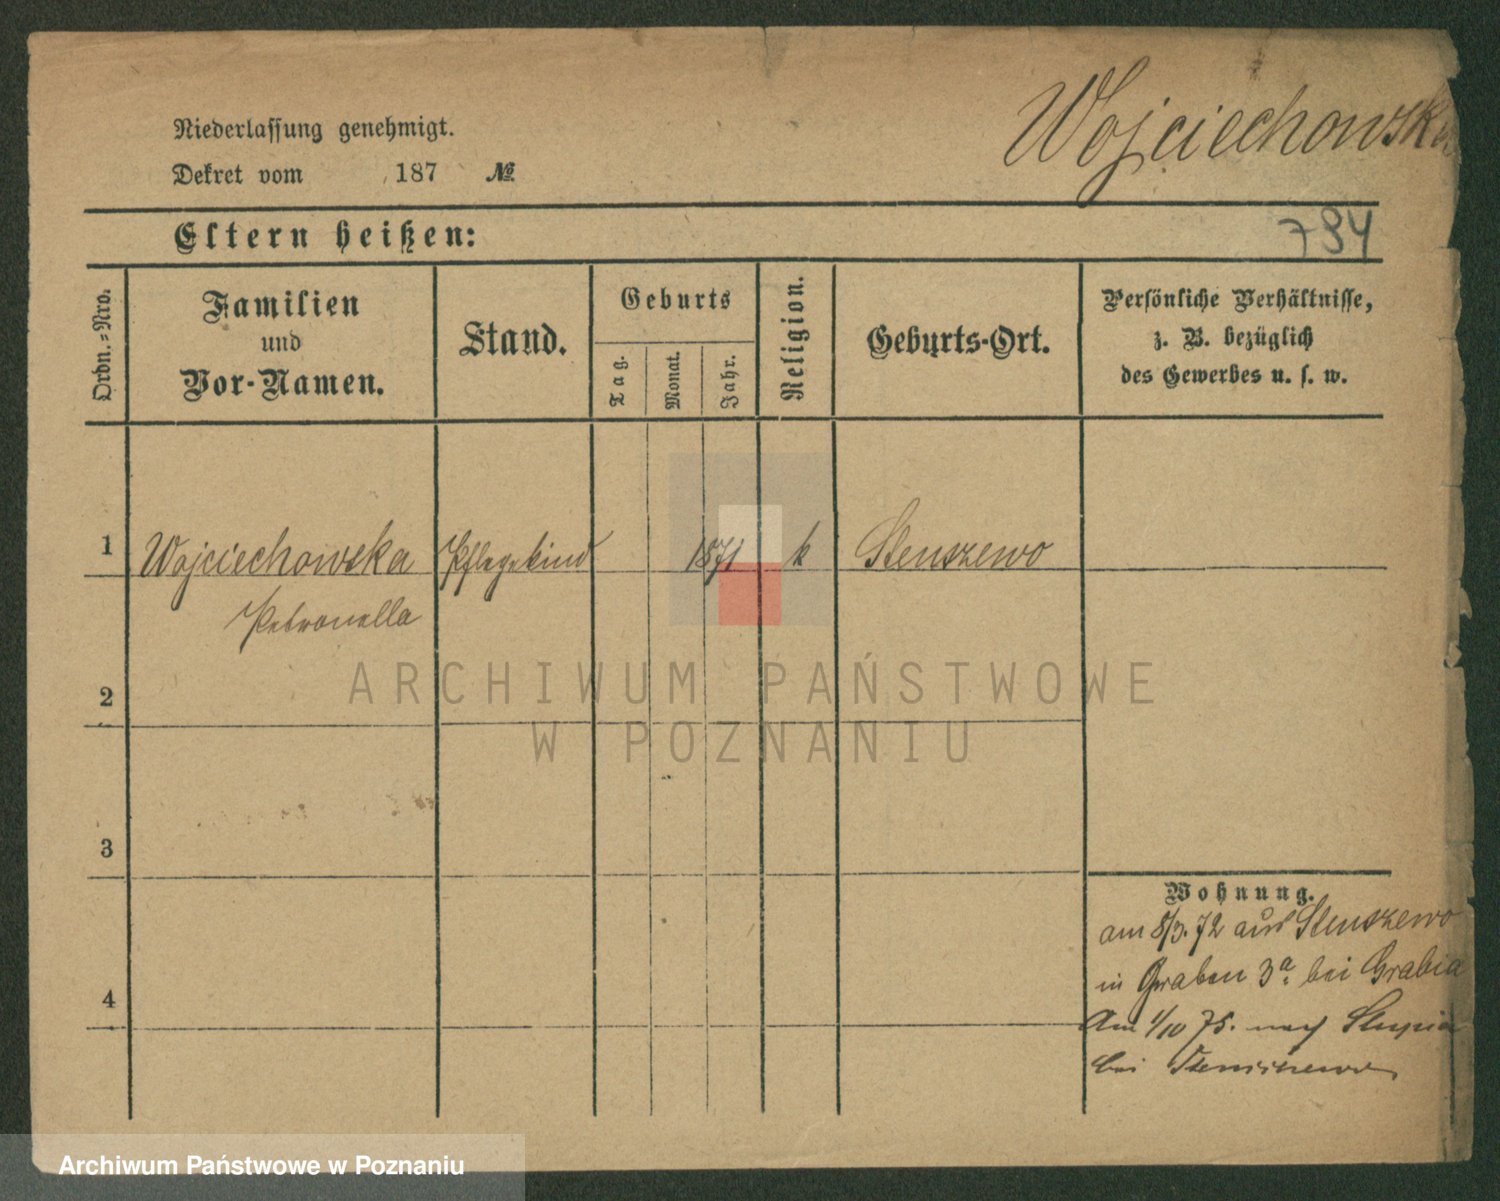 Wojciechowska
Niederlassung genehmigt.
Dekret vom 187 №
794
Eltern heißen:
Ordn.=Nro.
Familien
und
Vor-Namen.
Stand.
Geburts
Tag.
Monat.
Jahr.
Religion.
Geburts-Ort.
Persönliche Verhältnisse,
z. B. bezüglich
des Gewerbes u. s. w.
1 Wojciechowska Pflegekind 1871 k Stenszewo
Petronella
2
3
4
Wohnung.
am 8/3. 72 aus Stenszewo
in Graben 3a. bei Grabia
Am 1/10 75. nach Slupia
bei Stenszewo
ARCHIWUM PAŃSTWOWE
W POZNANIU
Archiwum Państwowe w Poznaniu